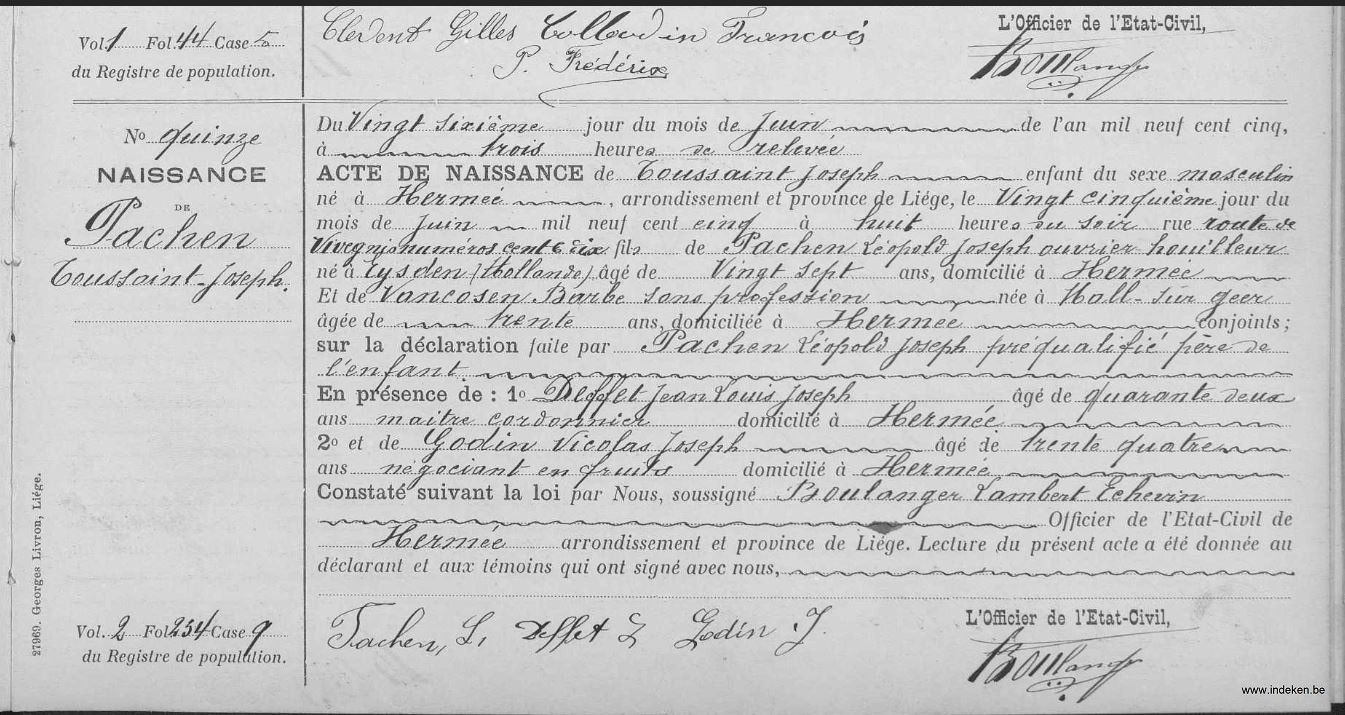 Vol. 1 Fol. 44 Case 5
du Registre de population.
Gilles Collardin François
P. Frédérix
L'Officier de l'Etat-Civil,
Boulanger
No quinze
NAISSANCE
DE
Pachen
Toussaint-Joseph.
Du Vingt sixième jour du mois de Juin de l'an mil neuf cent cinq,
à trois heures de relevée
ACTE DE NAISSANCE de Toussaint Joseph enfant du sexe masculin
né à Hermée, arrondissement et province de Liége, le Vingt cinquième jour du
mois de Juin mil neuf cent cinq à huit heures du soir rue route de
Vivegnis numéros cent & dix fils de Pachen Léopold Joseph ouvrier houilleur
né à Eysden (Hollande) âgé de Vingt sept ans, domicilié à Hermée
Et de Vancosen Barbe sans profession née à Hall-sur geer
âgée de trente ans, domiciliée à Hermée conjoints;
sur la déclaration faite par Pachen Léopold Joseph préqualifié père de
l'enfant.
En présence de : 1o Deffet Jean Louis Joseph âgé de quarante deux
ans maitre cordonnier domicilié à Hermée
2o et de Godin Nicolas Joseph âgé de trente quatre
ans négociant en fruits domicilié à Hermée
Constaté suivant la loi par Nous, soussigné Boulanger Lambert Echevin
Officier de l'Etat-Civil de
Hermée arrondissement et province de Liége. Lecture du présent acte a été donnée au
déclarant et aux témoins qui ont signé avec nous,
Vol. 2 Fol. 254 Case 9
du Registre de population.
Pachen, L, Deffet L Godin J.
L'Officier de l'Etat-Civil,
Boulanger
27969. Georges Livron, Liége.
www.indeken.be